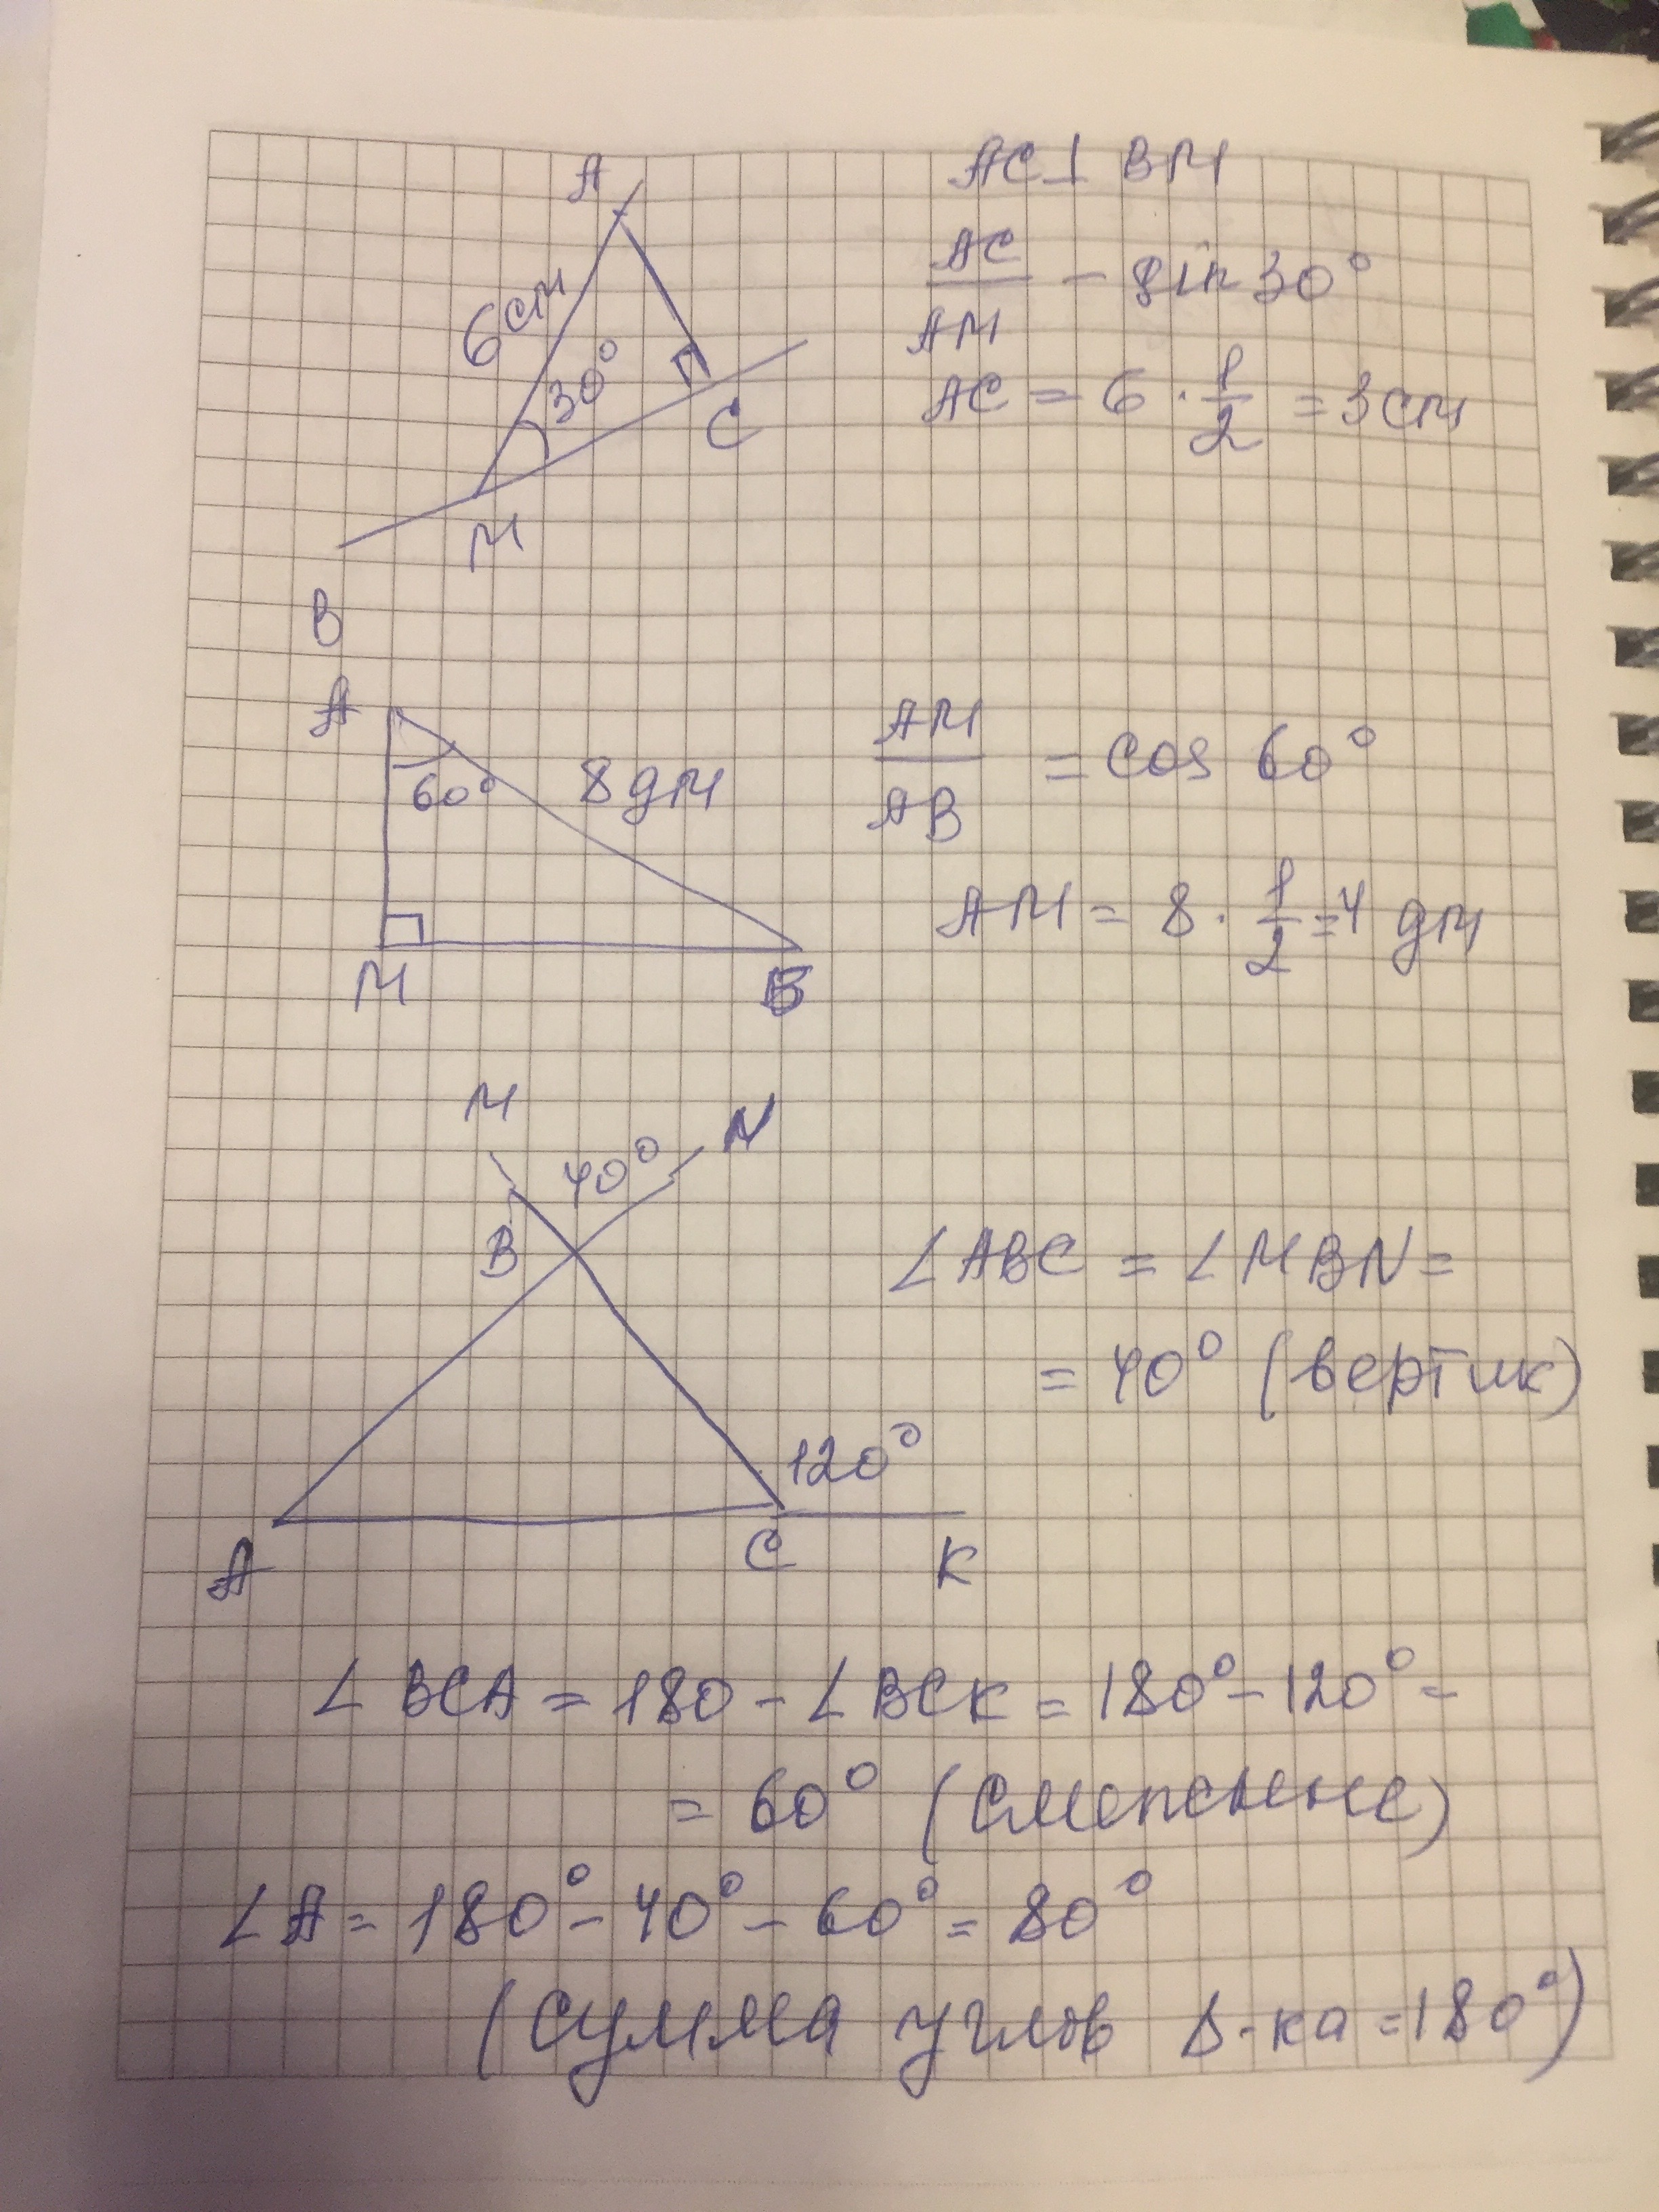 A
6 см
30°
C
M
B
AC ⊥ BM
AC
— - sin 30°
AM
AC = 6 · 1/2 = 3 см
A
60°
8 дм
M
B
AM
— = cos 60°
AB
AM = 8 · 1/2 = 4 дм
M
N
40°
B
120°
A
C
K
∠ABC = ∠MBN =
= 40° (вертик)
∠BCA = 180 - ∠BCK = 180° - 120° =
= 60° (смежные)
∠A = 180° - 40° - 60° = 80°
(сумма углов Δ-ка = 180°)